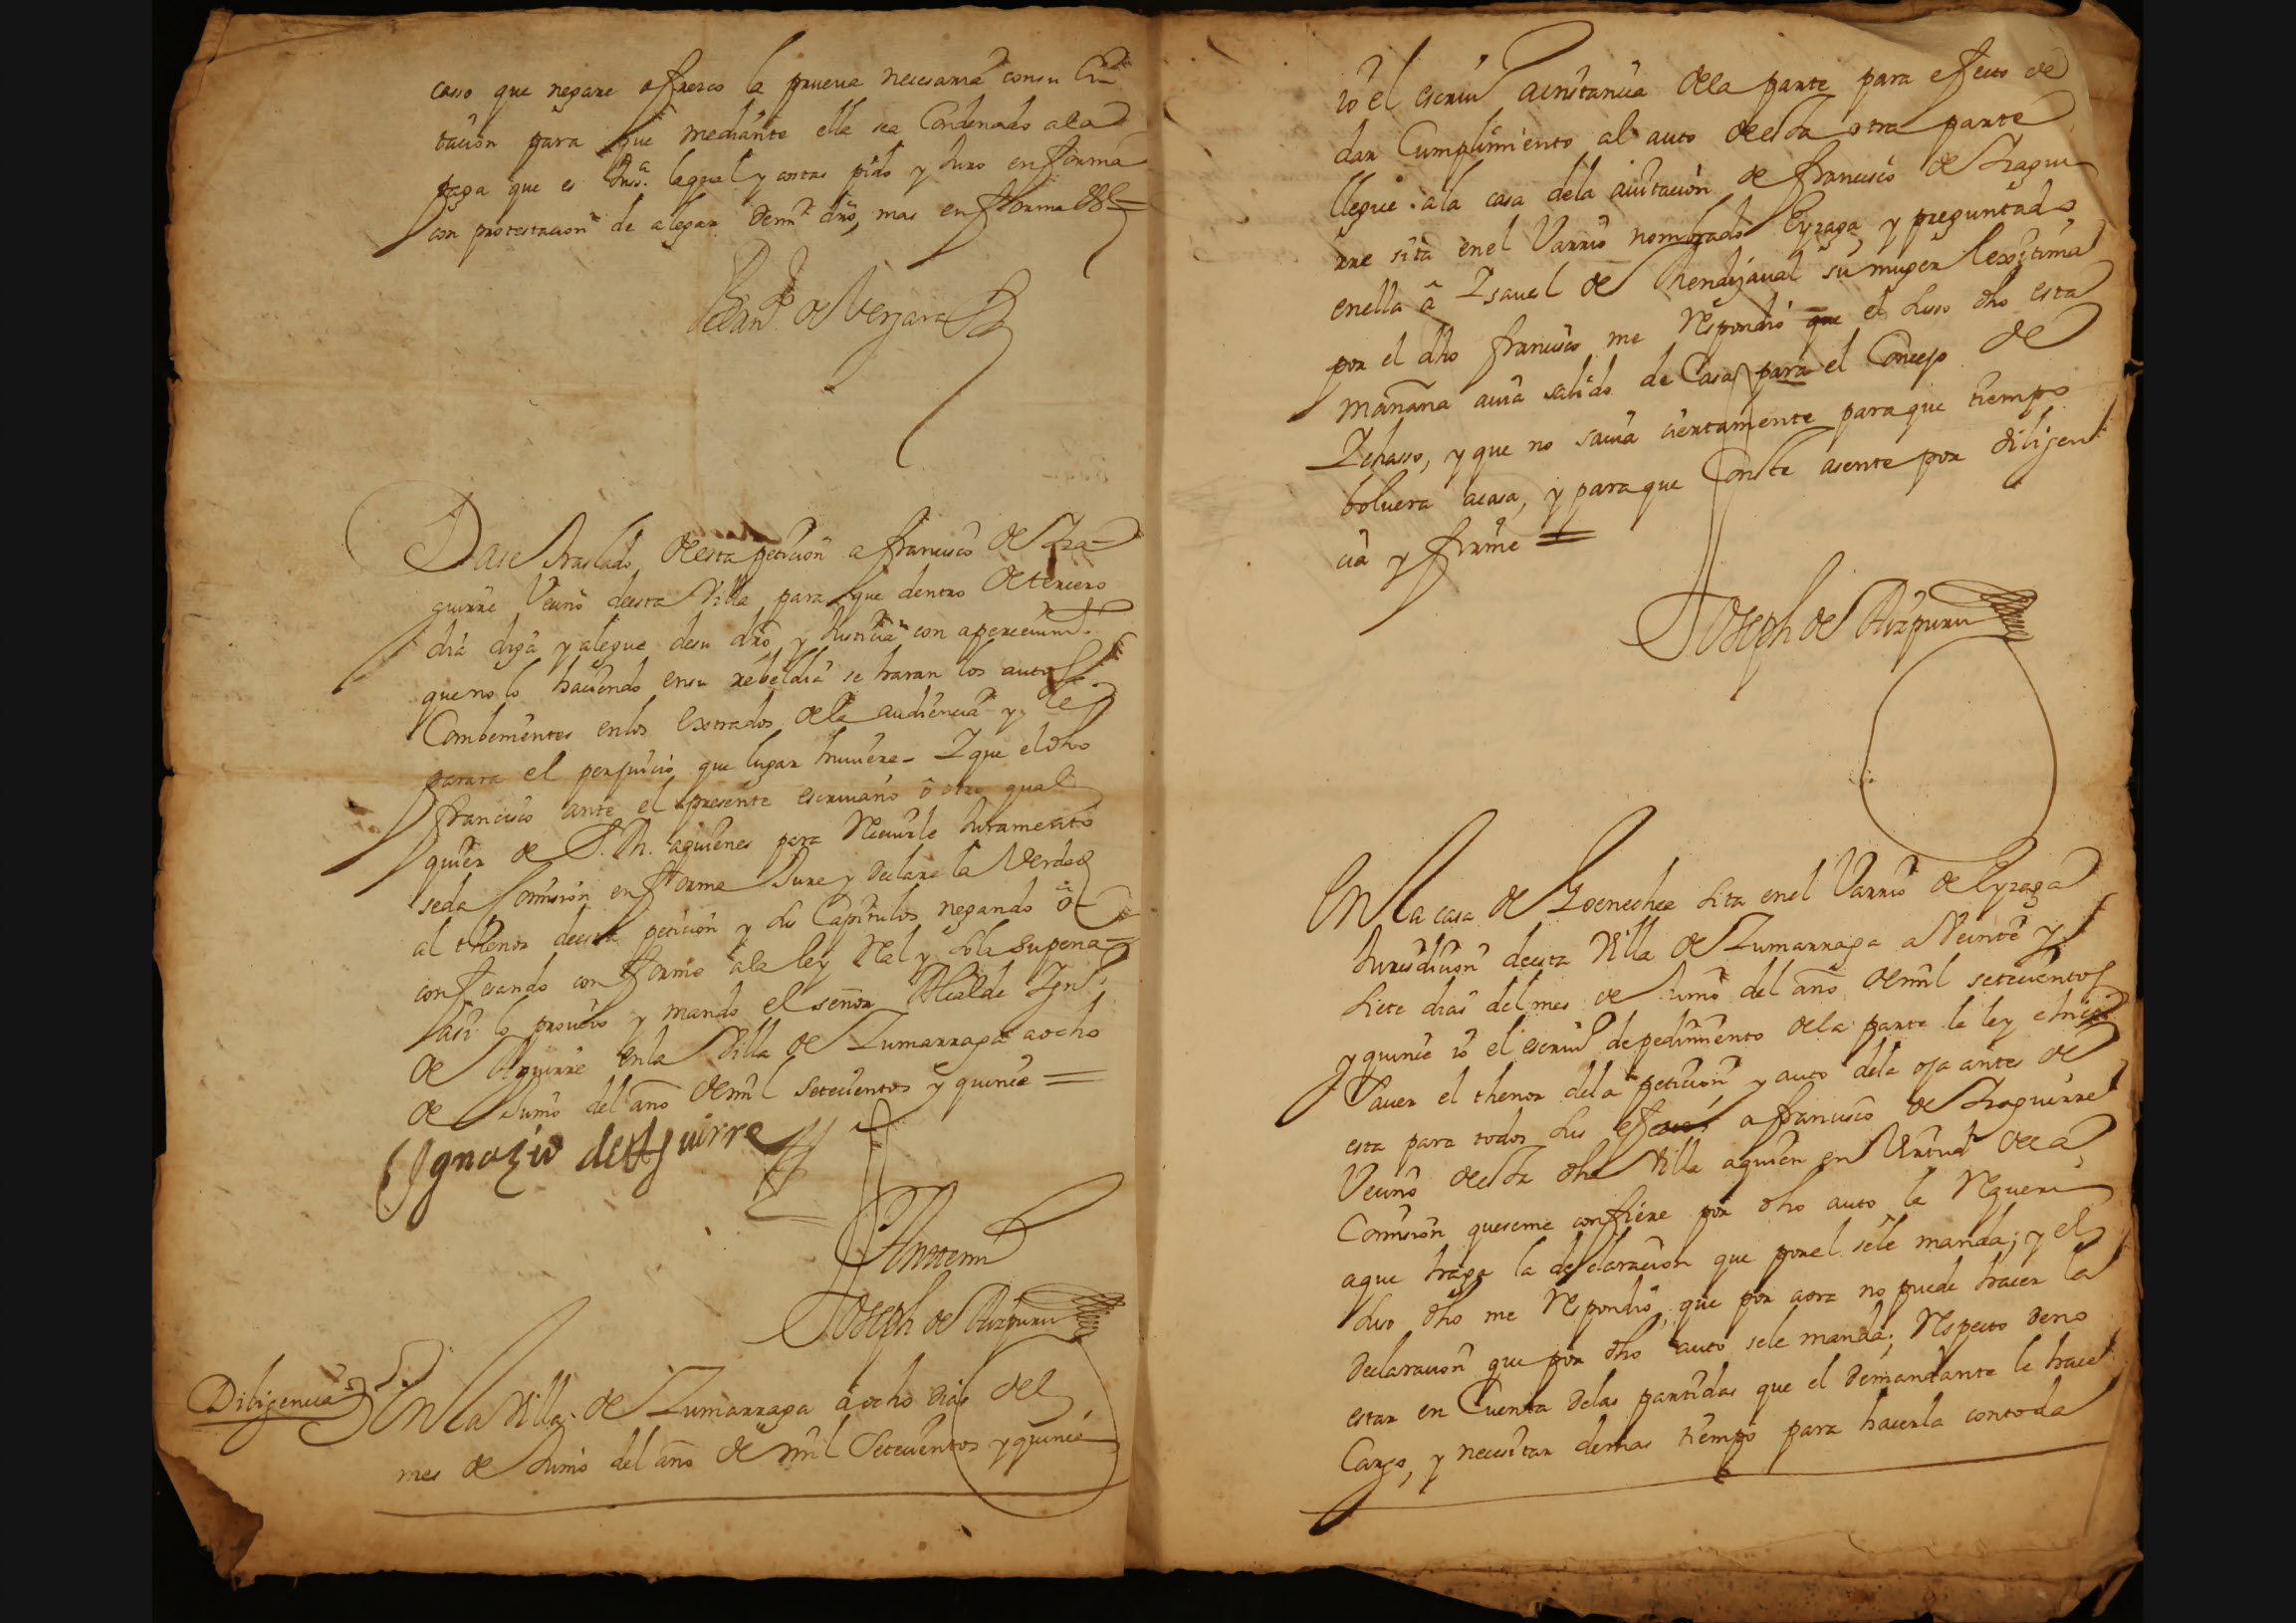 casso que negare ofrezco la prueua necesaria con su Ci-
tacion para que mediante ella sea Condenado a la
paga que es Juss.ª la qual y costas pido y Juro en forma
con protestacion de alegar dem.s dro, mas en fforma
de Vergara
Dase traslado de esta peticion a francisco de Yza-
guirre Vecino de esta Villa para que dentro de tercero
dia diga y alegue de su dro y Justicia con aperceuim.to
que no lo haciendo en su rebeldia se haran los autos
Combenientes en los Extrados de la audiencia y le
parara el perjuicio que lugar huuiere - Y que el dho
francisco ante el presente escriuano o otro qual
quier de S. M. a quienes para Reciuirle Juramento
se da Comision en fforma Jure y declare la Verdad
al thenor de esta peticion y sus Capitulos negando o
confesando conforme a la ley Real y so la su pena
asi lo proueyo y mando el señor Alcalde Ygn.º
de Aguirre en la Villa de Zumarraga a ocho
de Junio del año de mil Setecientos y quince =
Ygnazio de Aguirre
Ante mi
Joseph de Aizpuru
Diligencia
En la Villa de Zumarraga a ocho dias del
mes de Junio del año de mil Setecientos y quince
io el escriu.º a instancia de la parte para efecto de
dar Cumplimiento al auto de esta otra parte
llegue a la casa de la auitacion de francisco de Yzagui
rre sita en el Varrio nombrado Eyzaga, y preguntado
en ella a Ysauel de Mendijaual su muger lexitima
por el dho francisco me Respondio que el suso dho esta
mañana auia salido de Casa para el Concejo de
Ychasso, y que no sauia ciertamente para que tiempo
boluera a casa, y para que Conste asente por diligen
cia y firme =
Joseph de Aizpuru
En la casa de Goenechea sita en el Varrio de Eyzaga
Jurisdicion de esta Villa de Zumarraga a Veinte y
siete dias del mes de Junio del año de mil setecientos
y quince io el escriu.º de pedimiento de la parte le ley e hice
sauer el thenor de la peticion y auto de la oja antes de
esta para todos sus efectos a francisco de Yzaguirre
Vecino de esta dha Villa a quien en Virtud de la
Comision que se me confiere por dho auto le Requeri
a que haga la declaracion que por el se le manda; y el
suso dho me Respondio, que por aora no puede hacer la
declaracion que por dho auto se le manda; Respecto de no
estar en Cuenta de las partidas que el demandante le hace
Cargo, y necesitar de mas tiempo para hacerla con toda